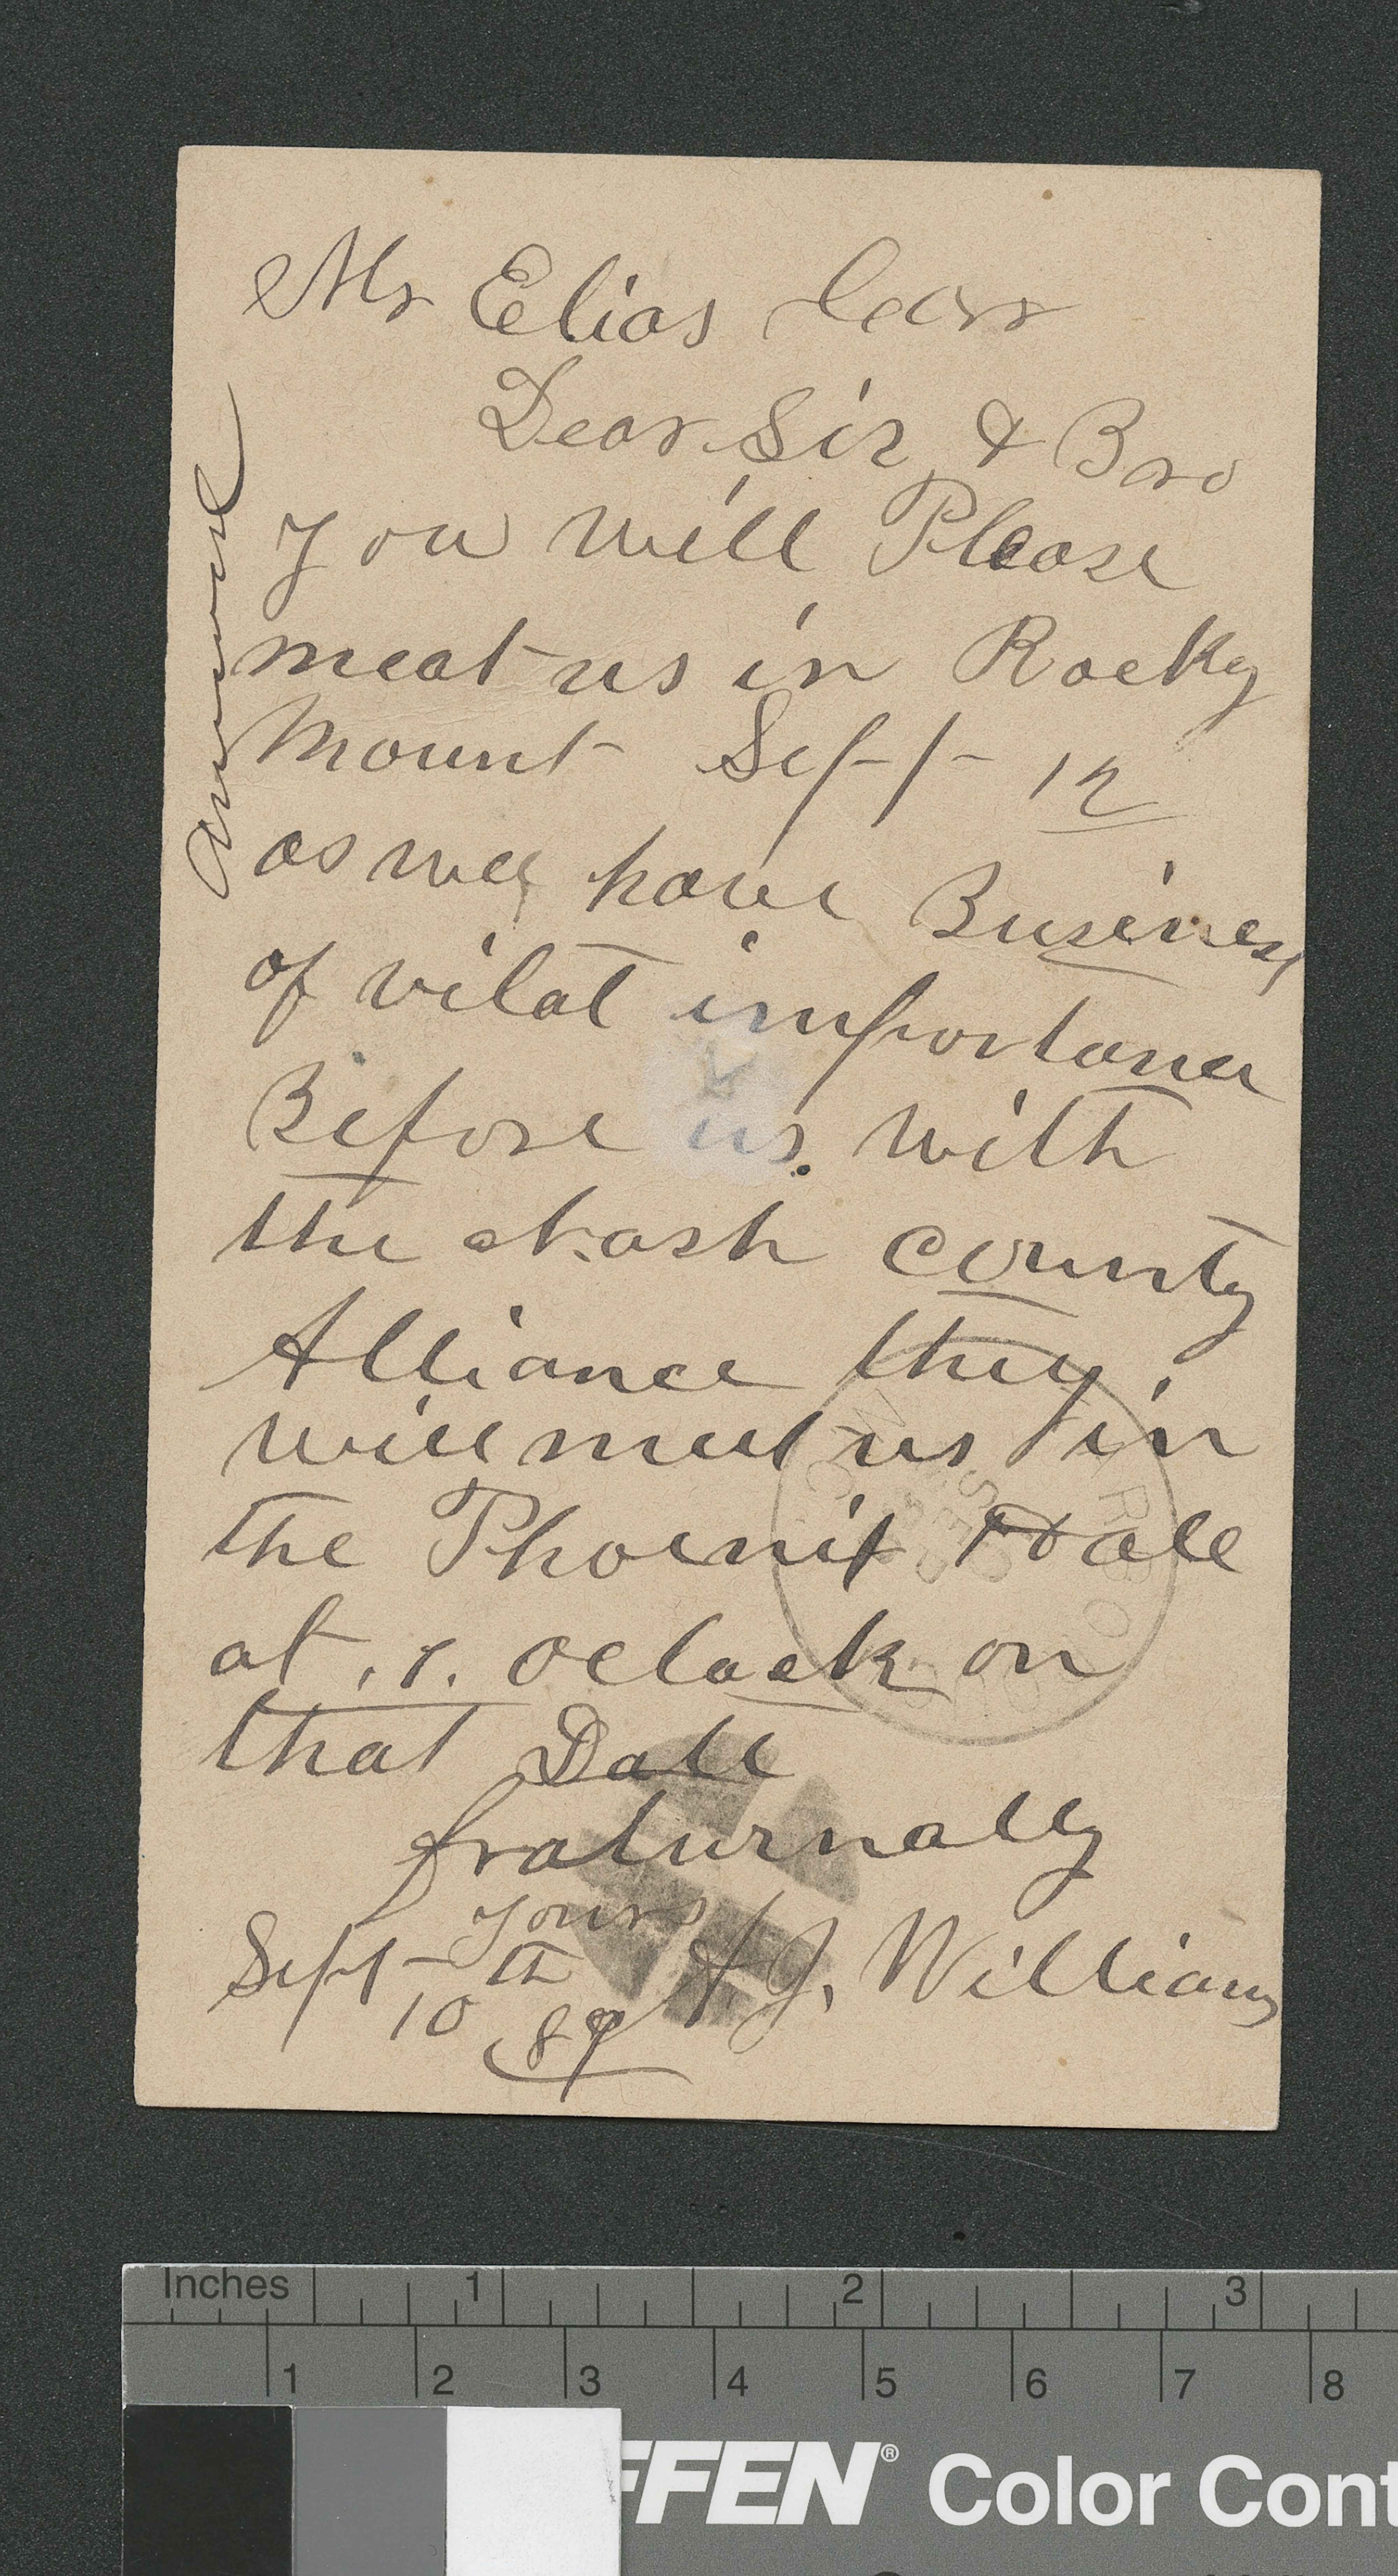 Mr Elias Carr
Dear Sir & Bro
you will Please
meat us in Rocky
Mount Sept 12
as we have Business
of vital importance
Before us. with
the Nash county
Alliance they
will meet us in
the Phoenix Hall
at .1. oclock on
that Date
fraturnally
yours
Sept 10th 89 A J. Williams
Answered
Inches 1 2 3
1 2 3 4 5 6 7 8
FFEN® Color Cont